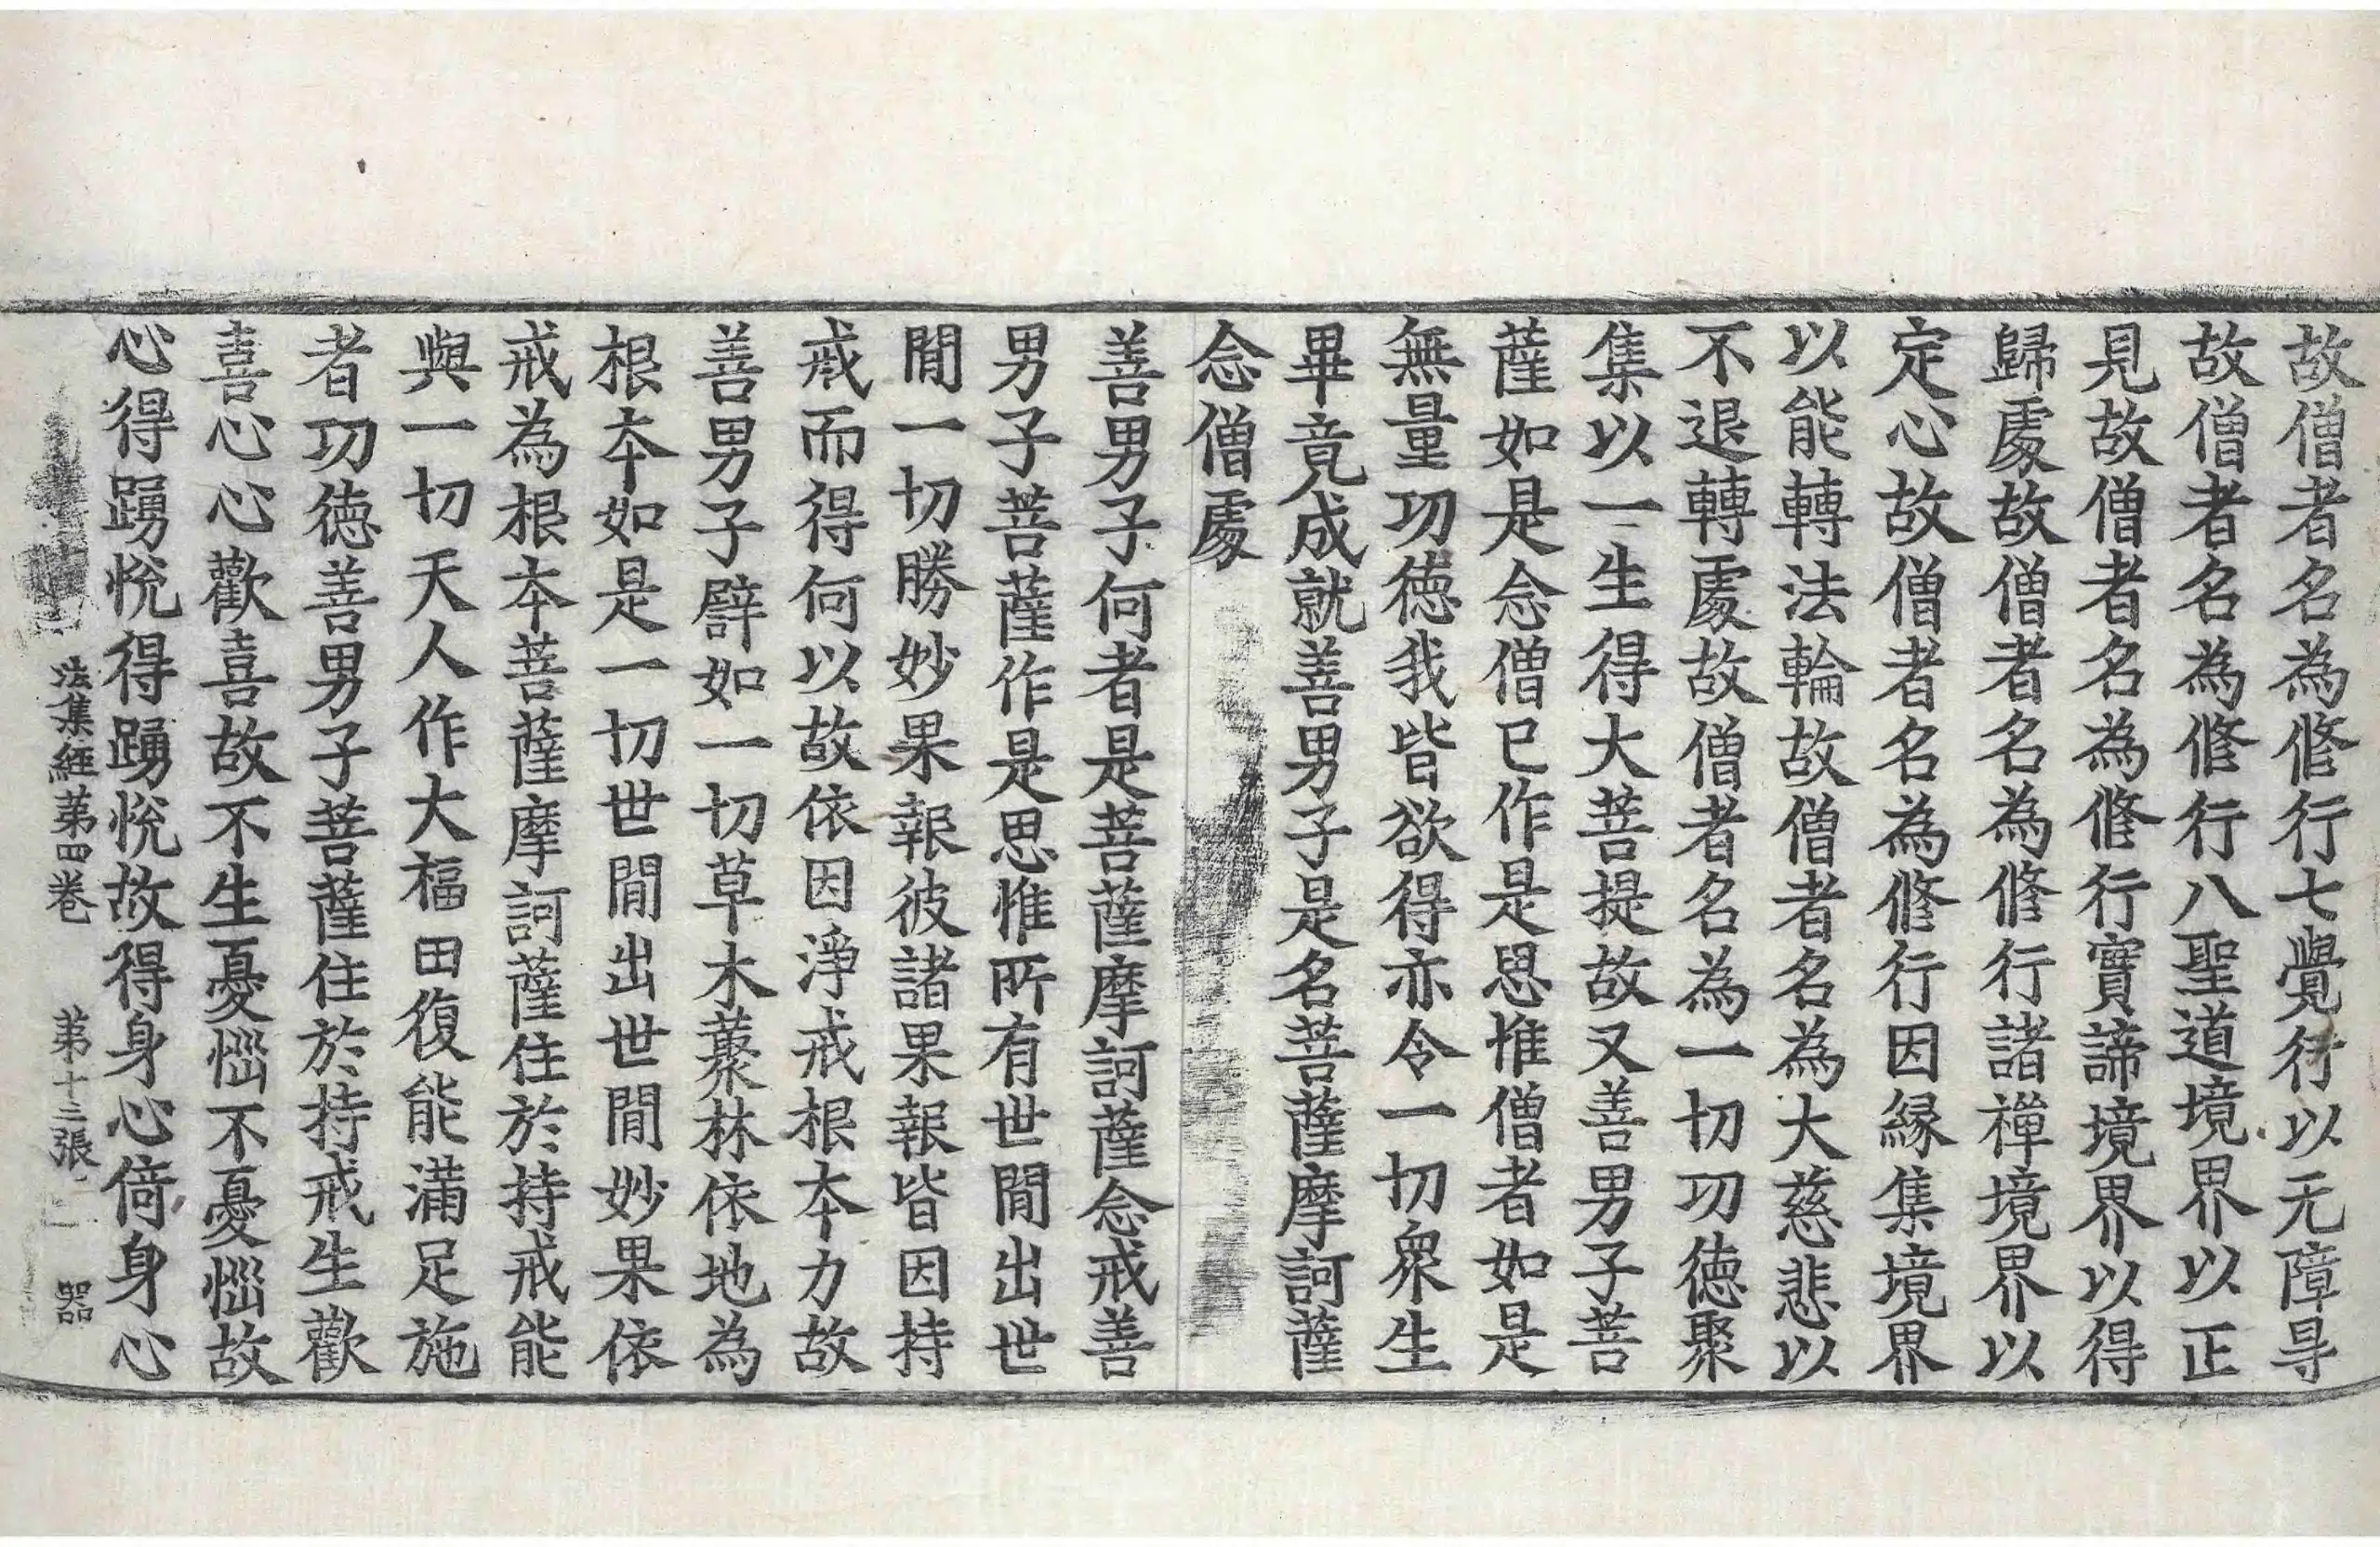 故僧者名為修行七覺行以无障㝵
故僧者名為修行八聖道境界以正
見故僧者名為修行實諦境界以得
歸處故僧者名為修行諸禪境界以
定心故僧者名為修行因縁集境界
以能轉法輪故僧者名為大慈悲以
不退轉處故僧者名為一切功徳聚
集以一生得大菩提故又善男子菩
薩如是念僧已作是思惟僧者如是
無量功徳我皆欲得亦令一切衆生
畢竟成就善男子是名菩薩摩訶薩
念僧處
善男子何者是菩薩摩訶薩念戒善
男子菩薩作是思惟所有世間出世
間一切勝妙果報彼諸果報皆因持
戒而得何以故依因淨戒根本力故
善男子譬如一切草木藂林依地為
根本如是一切世間出世間妙果依
戒為根本菩薩摩訶薩住於持戒能
與一切天人作大福田復能滿足施
者功徳善男子菩薩住於持戒生歡
喜心心歡喜故不生憂惱不憂惱故
心得踴悅得踴悅故得身心倚身心
法集經第四卷 第十三張 器